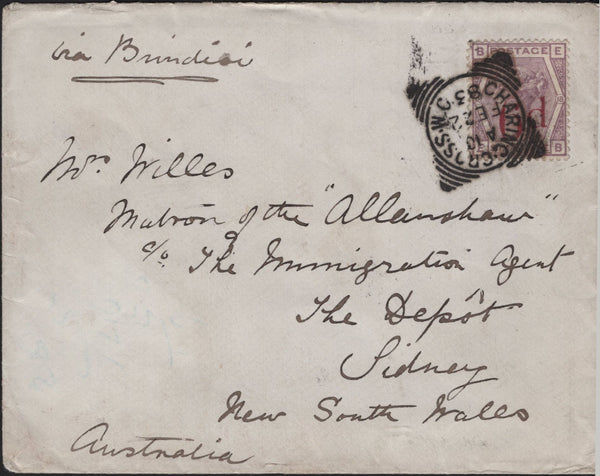 via Brindisi
B POSTAGE E
CHARING CROSS. W.C.
A 10
FE 2
83
d
E B
Mrs. Willes
Matron of the "Allanshaw"
c/o. The Immigration Agent
The Depôt
Sidney
New South Walles
Australia